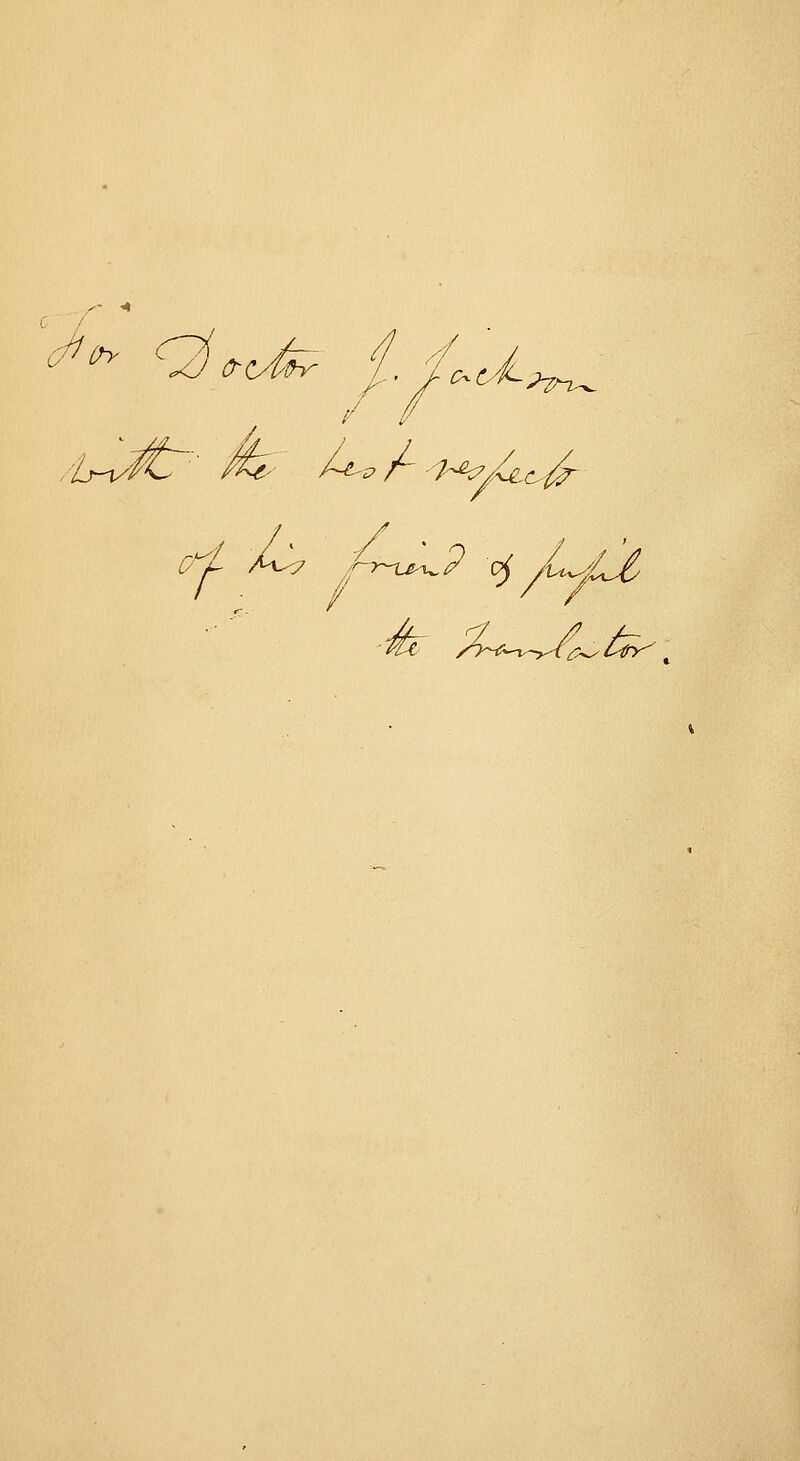 For Doctor J. Jackson
with the best respects
of his friend & pupil
the Translator.